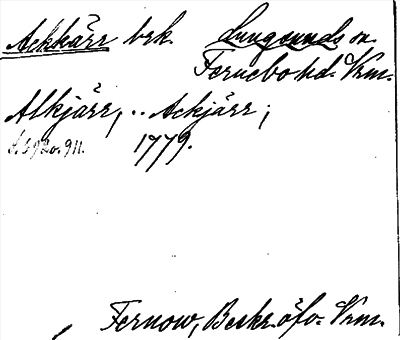 Ackkärr brk. Lungsunds sn.
Fernebo hd. Vrm.
Alkjärr, .. Ackjärr;
1779.
Fernow, Beskr. öfv. Vrm.